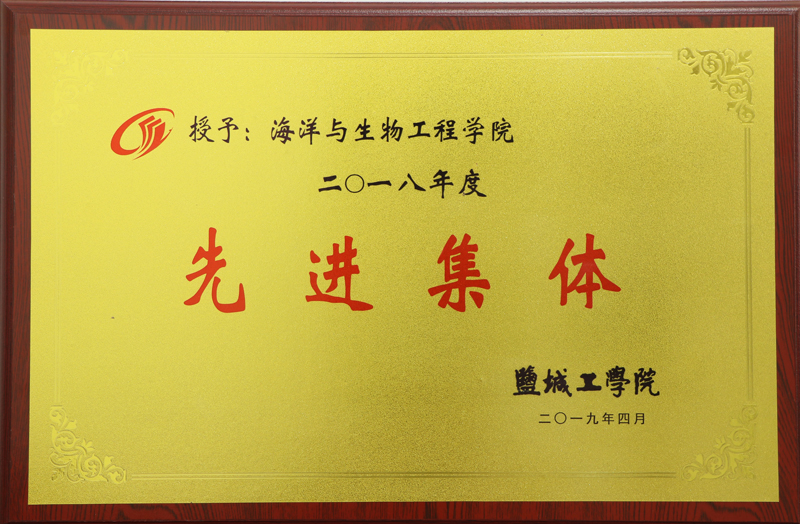 授予：海洋与生物工程学院
二〇一八年度
先进集体
鹽城工學院
二〇一九年四月